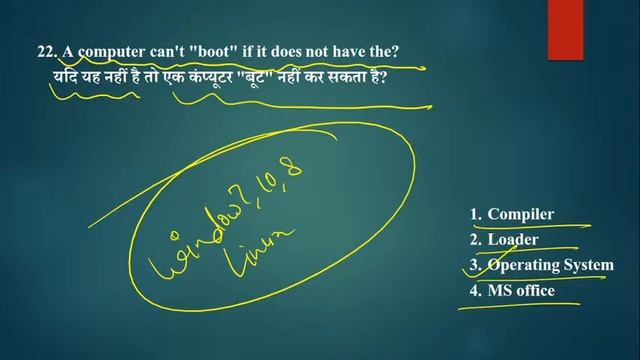 22. A computer can't "boot" if it does not have the?
यदि यह नहीं है तो एक कंप्यूटर "बूट" नहीं कर सकता है?
window7, 10, 8
Linux
1. Compiler
2. Loader
3. Operating System
4. MS office